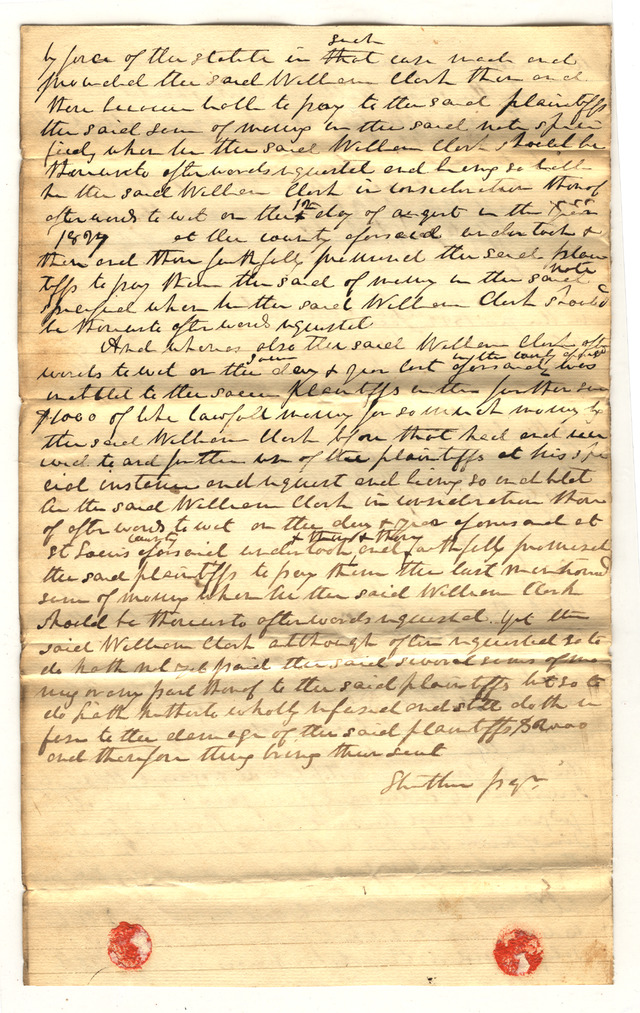 such
by force of the statute in that case made and
provided the said William Clark then and
there became liable to pay to the said plaintiffs
the said sum of money in the said note speci
fied when he the said William Clark should be
thereunto afterwards requested and being so liable
he the said William Clark in consideration thereof
afterwards to wit on the 12 day of august in the year
1827 at the county aforesaid undertook &
then and there faithfully promised the said plain
tiffs to pay them the said of money in the said note
specified when he the said William Clark should
be thereunto afterwards requested
And whereas also the said William Clark after
wards to wit on the same day & year last aforesaid at the county aforesaid was
indebted to the said plaintiffs in the further sum
$1000 of like lawfull money for so much money by
the said William Clark before that had and recei
ved to and for the use of the plaintiffs at his spe
cial instance and request and being so indebted
he the said William Clark in consideration there
of afterwards to wit on the day & year aforesaid at
St Louis county aforesaid undertook & then & there and faithfully promised
the said plaintiffs to pay them the last mentioned
sum of money when he the said William Clark
should be thereunto afterwards requested. Yet the
said William Clark although often requested so to
do hath not yet paid the said several sums of mo
ney or any part thereof to the said plaintiffs but so to
do hath hitherto wholly refused and still doth re
fuse to the damage of the said plaintiffs $2000
and therefore they bring their suit